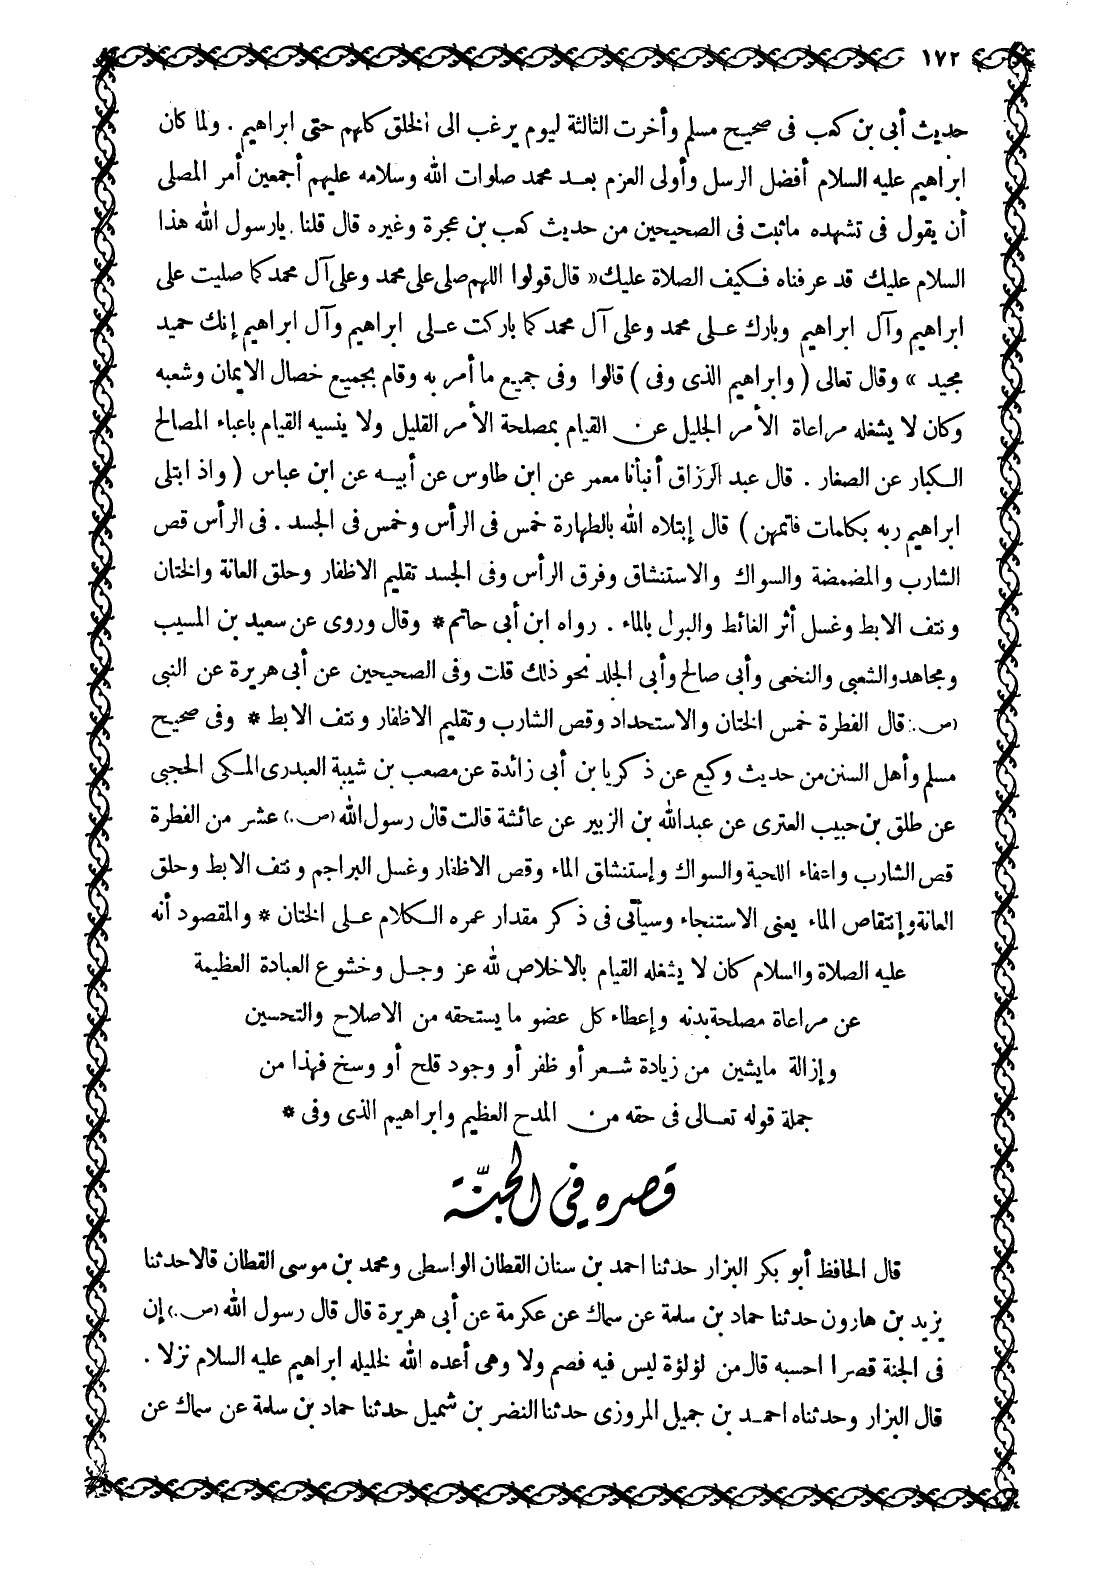 ١٧٢
حديث أبي بن كعب فى صحيح مسلم وأخرت الثالثة ليوم يرغب الى الخلق كلهم حتى ابراهيم . ولما كان
ابراهيم عليه السلام أفضل الرسل وأولى العزم بعد محمد صلوات الله وسلامه عليهم أجمعين أمر المصلى
أن يقول فى تشهده ماثبت فى الصحيحين من حديث كعب بن عجرة وغيره قال قلنا يارسول الله هذا
السلام عليك قد عرفناه فكيف الصلاة عليك« قال قولوا اللهم صلى على محمد وعلى آل محمد كما صليت على
ابراهيم وآل ابراهيم وبارك على محمد وعلى آل محمد كما باركت على ابراهيم وآل ابراهيم إنك حميد
مجيد » وقال تعالى ( وابراهيم الذى وفى ) قالوا وفى جميع ما أمر به وقام بجميع خصال الايمان وشعبه
وكان لا يشغله مراعاة الأمر الجليل عن القيام بمصلحة الأمر القليل ولا ينسيه القيام باعباء المصالح
الكبار عن الصغار . قال عبد الرزاق أنبأنا معمر عن ابن طاوس عن أبيه عن ابن عباس ( واذ ابتلى
ابراهيم ربه بكلمات فاتمهن ) قال إبتلاه الله بالطهارة خمس فى الرأس وخمس فى الجسد . فى الرأس قص
الشارب والمضمضة والسواك والاستنشاق وفرق الرأس وفى الجسد تقليم الاظفار وحلق العانة والختان
ونتف الابط وغسل أثر الغائط والبول بالماء . رواه ابن أبى حاتم* وقال وروى عن سعيد بن المسيب
ومجاهدوالشعبى والنخعى وأبى صالح وأبى الجلد نحو ذلك قلت وفى الصحيحين عن أبى هريرة عن النبى
(ص.) قال الفطرة خمس الختان والاستحداد وقص الشارب وتقليم الاظفار ونتف الابط * وفى صحيح
مسلم وأهل السنن من حديث وكيع عن ذكريا بن أبى زائدة عن مصعب بن شيبة العبدرى المكى الحجبى
عن طلق بن حبيب العترى عن عبدالله بن الزبير عن عائشة قالت قال رسول الله (ص.) عشر من الفطرة
قص الشارب واعفاء اللحية والسواك وإستنشاق الماء وقص الاظفار وغسل البراجم ونتف الابط وحلق
العانة وإنتقاص الماء يعنى الاستنجاء وسيأتى فى ذكر مقدار عمره الكلام على الختان * والمقصود أنه
عليه الصلاة والسلام كان لا يشغله القيام بالاخلاص لله عز وجل وخشوع العبادة العظيمة
عن مراعاة مصلحة بدنه وإعطاء كل عضو ما يستحقه من الاصلاح والتحسين
وإزالة مايشين من زيادة شعر أو ظفر أو وجود قلح أو وسخ فهذا من
جملة قوله تعالى فى حقه من المدح العظيم وابراهيم الذى وفى *
قصره في الجنّة
قال الحافظ أبو بكر البزار حدثنا احمد بن سنان القطان الواسطى ومحمد بن موسى القطان قالا حدثنا
يزيد بن هارون حدثنا حماد بن سلمة عن سماك عن عكرمة عن أبى هريرة قال قال رسول الله (ص.) إن
فى الجنة قصرا احسبه قال من لؤلؤة ليس فيه فصم ولا وهى أعده الله لخليله ابراهيم عليه السلام نزلا .
قال البزار وحدثناه احمد بن جميل المروزى حدثنا النضر بن شميل حدثنا حماد بن سلمة عن سماك عن